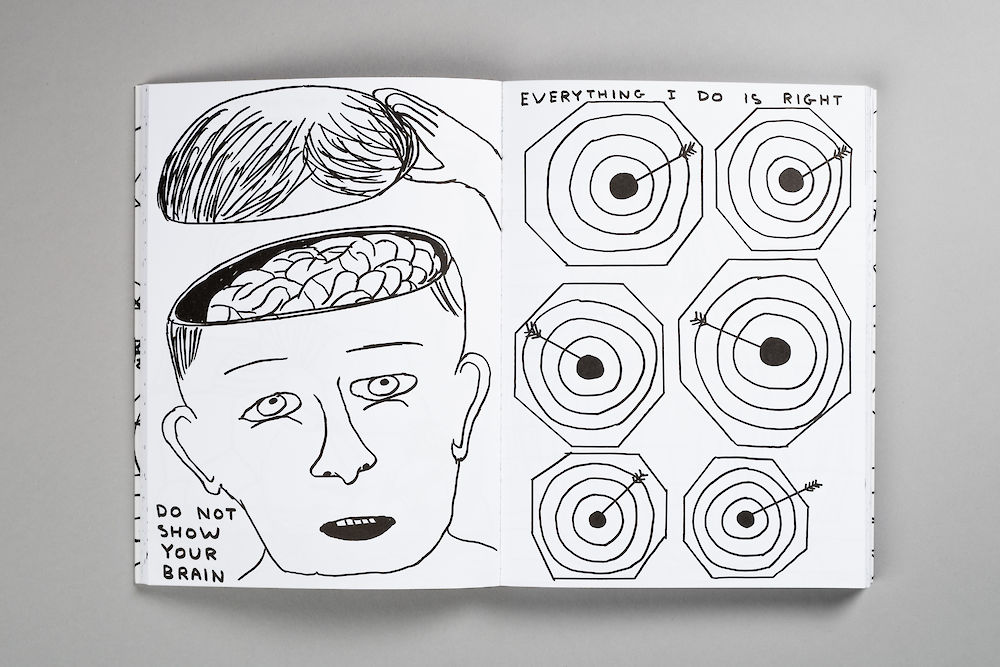 DO NOT
SHOW
YOUR
BRAIN
EVERYTHING I DO IS RIGHT